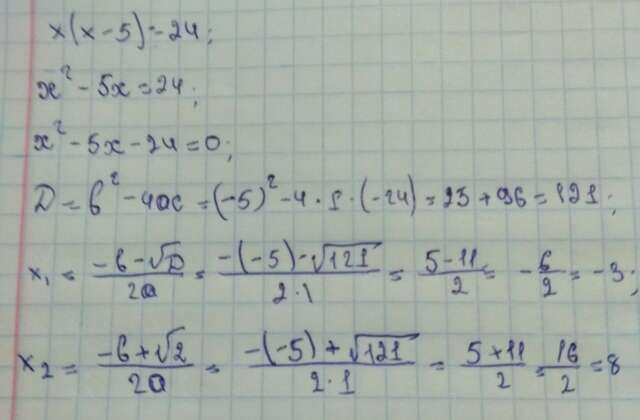 x(x-5)=24;
x² - 5x = 24;
x² - 5x - 24 = 0;
D = b² - 4ac = (-5)² - 4 · 1 · (-24) = 25 + 96 = 121;
x₁ = (-b - √D)/(2a) = (-(-5) - √121)/(2·1) = (5 - 11)/2 = -6/2 = -3;
x₂ = (-b + √2)/(2a) = (-(-5) + √121)/(2·1) = (5 + 11)/2 = 16/2 = 8